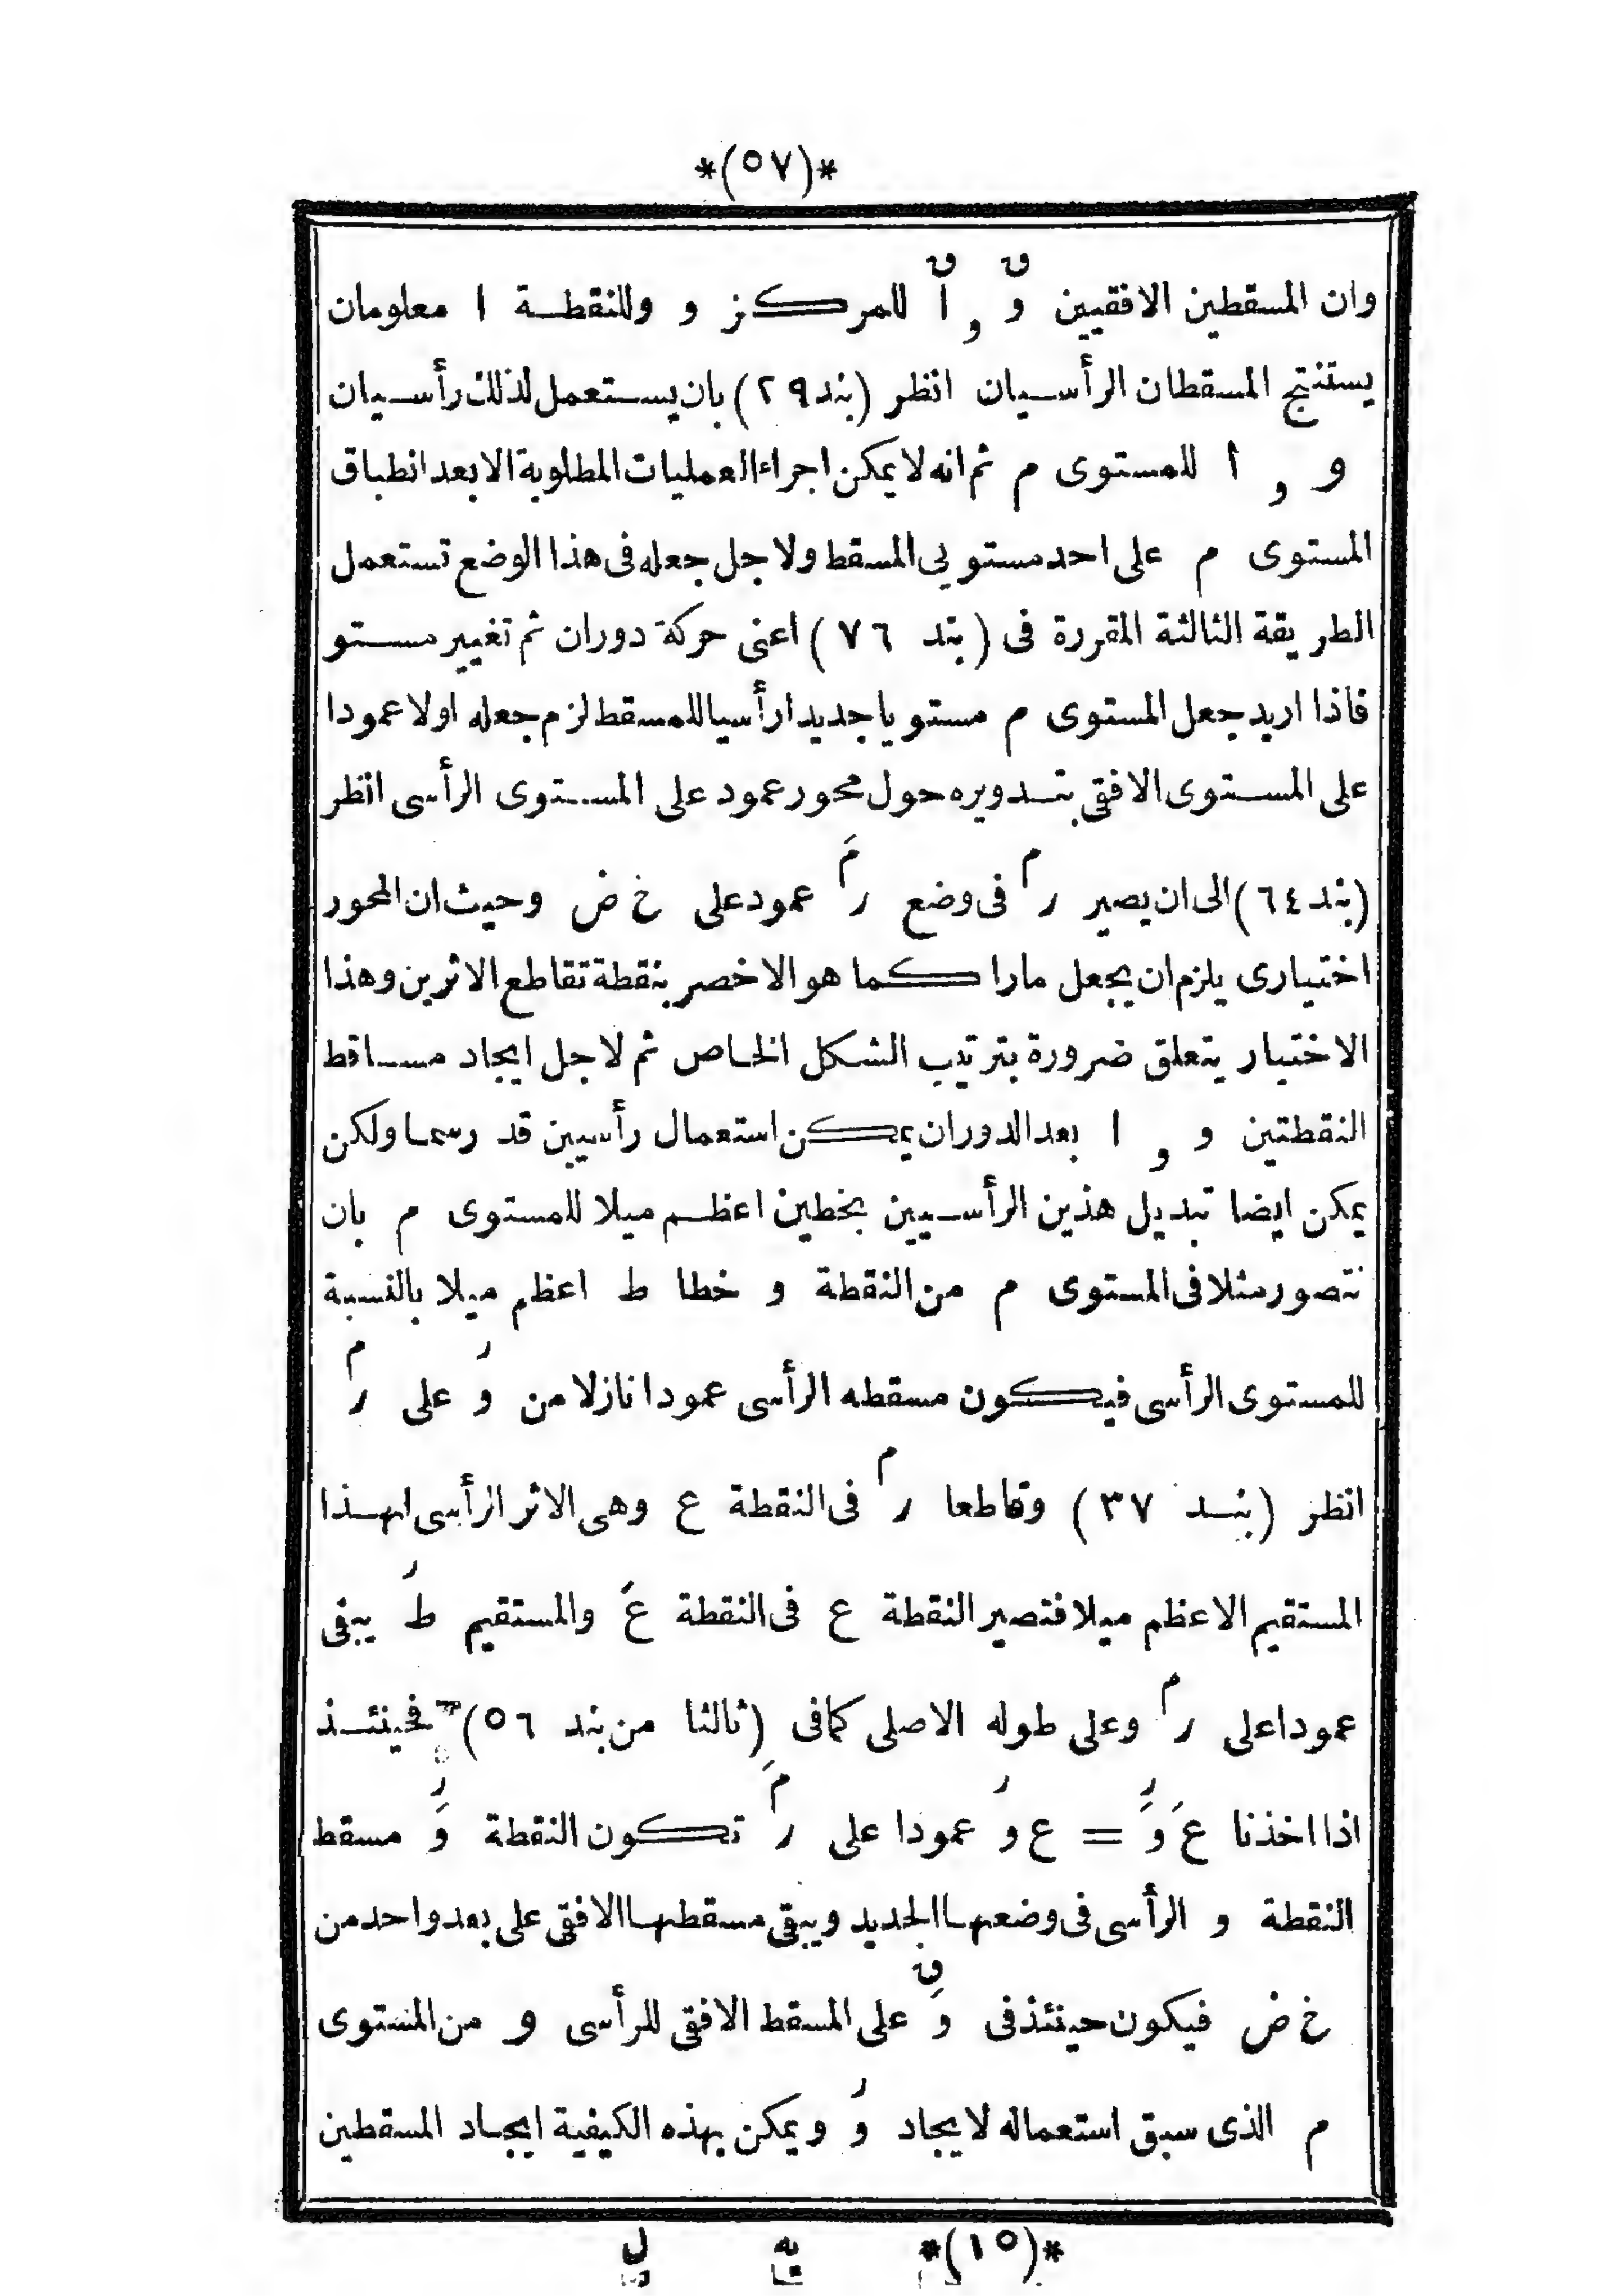 *(٥٧)*
وان المسقطين الافقيين وَ^ق و اَ^ق للمركز و وللنقطة ا معلومان
يستنتج المسقطان الرأسيان انظر (بند ٢٩) بان يستعمل لذلك رأسيان
و و ا للمستوى م ثم انه لا يمكن اجراء العمليات المطلوبة الا بعد انطباق
المستوى م على احد مستويى المسقط ولاجل جعله فى هذا الوضع تستعمل
الطريقة الثالثة المقررة فى (بند ٧٦) اعنى حركة دوران ثم تغيير مستو
فاذا اريد جعل المستوى م مستويا جديدا رأسيا للمسقط لزم جعله اولا عمودا
على المستوى الافقى بتدويره حول محور عمود على المستوى الرأسى انظر
(بند ٦٤) الى ان يصير ر^م فى وضع ر^مَ عمود على خ ض وحيث ان المحور
اختيارى يلزم ان يجعل مارا كما هو الاخصر بنقطة تقاطع الاثرين وهذا
الاختيار يتعلق ضرورة بترتيب الشكل الخاص ثم لاجل ايجاد مساقط
النقطتين و و ا بعد الدوران يمكن استعمال رأسيين قد رسما ولكن
يمكن ايضا تبديل هذين الرأسيين بخطين اعظم ميلا للمستوى م بان
نتصور مثلا فى المستوى م من النقطة و خطا ط اعظم ميلا بالنسبة
للمستوى الرأسى فيكون مسقطه الرأسى عمودا نازلا من وَ^ر على ر^م
انظر (بند ٣٧) وقاطعا ر^م فى النقطة ع وهى الاثر الرأسى لهذا
المستقيم الاعظم ميلا فتصير النقطة ع فى النقطة عَ والمستقيم طَ^ر يبقى
عمودا على ر^م وعلى طوله الاصلى كما فى (ثالثا من بند ٥٦) فحينئذ
اذا اخذنا عَ وَ^ر = ع وَ^ر عمودا على ر^مَ تكون النقطة وَ^ر مسقط
النقطة و الرأسى فى وضعها الجديد ويبقى مسقطها الافقى على بعد واحد من
خ ض فيكون حينئذ فى وَ^ق على المسقط الافقى للرأسى و من المستوى
م الذى سبق استعماله لايجاد وَ^ر ويمكن بهذه الكيفية ايجاد المسقطين
*(١٥)* يه ل